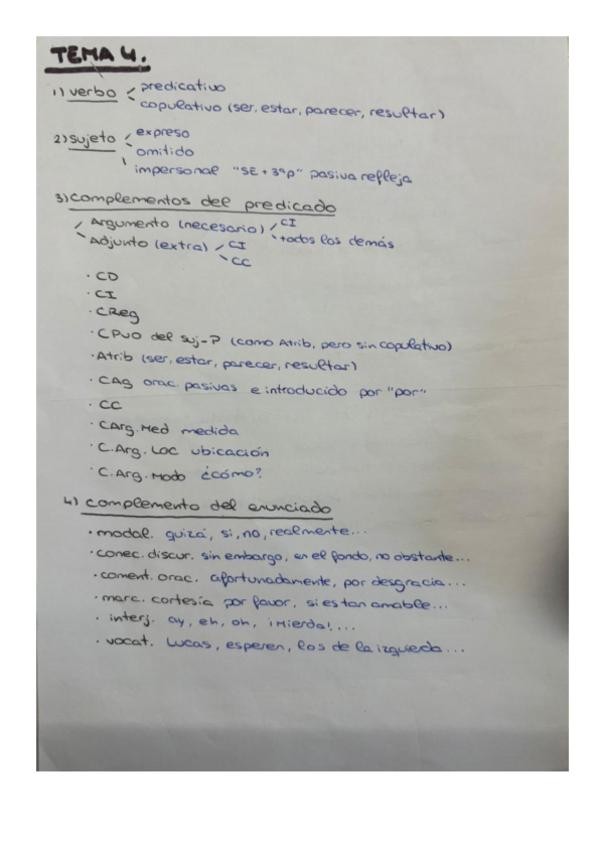 TEMA 4.
1) verbo predicativo
copulativo (ser, estar, parecer, resultar)
2) sujeto expreso
omitido
impersonal "SE + 3ªp" pasiva refleja
3) complementos del predicado
Argumento (necesario) CI
todos los demás
Adjunto (extra) CI
CC
· CD
· CI
· CReg
· CPVO del suj-P (como Atrib, pero sin copulativo)
· Atrib (ser, estar, parecer, resultar)
· CAg orac. pasivas e introducido por "por"
· CC
· CArg. Med medida
· C. Arg. Loc ubicación
· C. Arg. Modo ¿cómo?
4) complemento del enunciado
· modal. quizá, si, no, realmente...
· conec. discur. sin embargo, en el fondo, no obstante...
· coment. orac. afortunadamente, por desgracia...
· marc. cortesía por favor, si es tan amable...
· interj. ay, eh, oh, ¡Mierda!...
· vocat. Lucas, esperen, los de la izquierda...